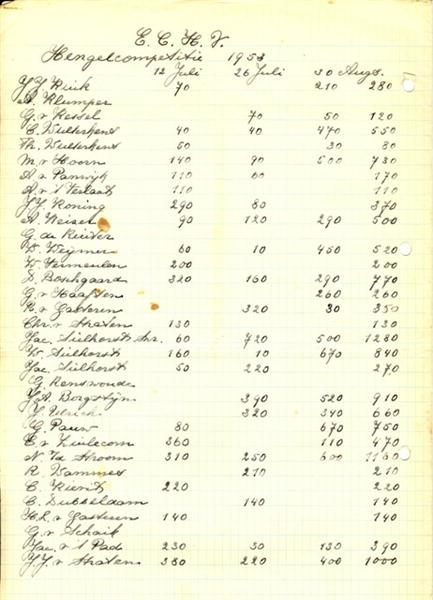 E. C. H. V.
Hengelcompetitie 1953
12 Juli 26 Juli 30 Augs.
J.J. Kuik 70 210 280
A. Klumper
G. v Kessel 70 50 120
C. Wulterkens 40 40 470 550
Th. Wulterkens 50 30 80
M. v Hoorn 140 90 500 730
A. v Panwijk 110 60 170
A. v 't Verlaat 110 110
J.J. Koning 290 80 370
A. Keisen 90 120 290 500
G. de Ruiter
D. Weymer 60 10 450 520
W. Vermeulen 200 200
D. Boschgaard 320 160 290 770
G. v Haaften 260 260
K. v Gasteren 320 30 350
Chr. v Straten 130 130
Jac. Sulhorst Snr. 60 720 500 1280
W. Sulhorst 160 10 670 840
Jac. Sulhorst 50 220 270
G. Renswoude
J.A. Borgstijn 390 520 910
J. Ulrich 320 340 660
G. Pauw 80 670 750
E v Zuilecom 360 110 470
N. Vd Stroom 310 250 600 1160
R. Wammes 210 210
C. Kieviet 220 220
C. Dubbeldam 140 140
H.L. v Gasteren 140 140
G. v Schaik
Jac. v 't Pad 230 30 130 390
J.J. v Straten 380 220 400 1000